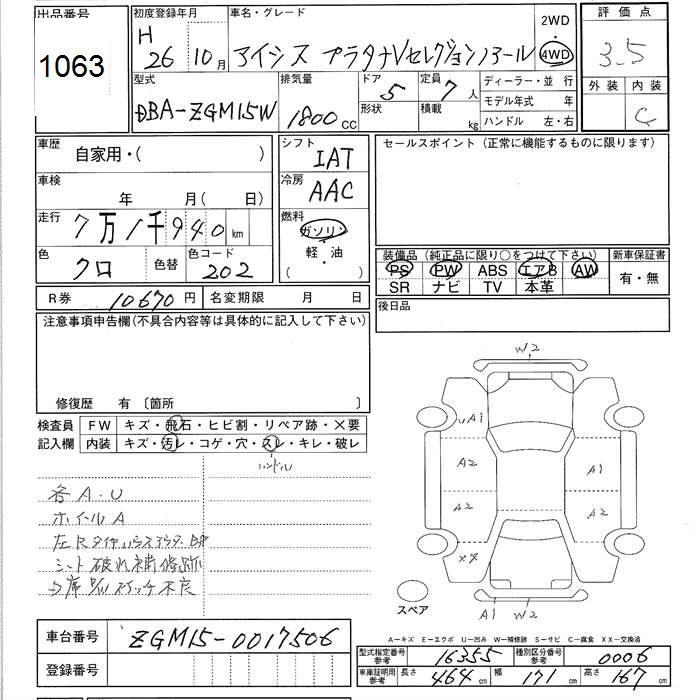 出品番号 1063
初度登録年月 H 26 10月
車名・グレード アイシス プラタナVセレクションノアール
2WD・4WD
評価点 3.5
外装 内装 C
型式 DBA-ZGM15W
排気量 1800 CC
ドア 5 形状
定員 7人 積載 kg
ディーラー・並行
モデル年式 年
ハンドル 左・右
車歴 自家用・( )
シフト IAT
セールスポイント(正常に機能するものに限ります)
車検 年 月( 日)
冷房 AAC
走行 7万1千940km
燃料 ガソリン・軽・油 ( )
色 クロ 色替 色コード 202
装備品(純正品に限り○をつけて下さい) 新車保証書
PS PW ABS エアB AW 有・無
SR ナビ TV 本革
R券 10670円 名変期限 月 日
後日品
注意事項申告欄(不具合内容等は具体的に記入して下さい)
修復歴 有 〔箇所 〕
検査員 FW キズ・飛石・ヒビ割・リペア跡・×要
記入欄 内装 キズ・汚レ・コゲ・穴・スレ・キレ・破レ
ハンドル
各A・U
ホイールA
シート破れ補修跡
P/W スイッチ不良
W2
A1
A2 A1
A2 A2
スペア
A1 W2
A―キズ E―エクボ U―凹み W―補修跡 S―サビ C―腐食 XX―交換済
車台番号 ZGM15-0017506
登録番号
型式指定番号 参考 16355 種別区分番号 参考 0006
車庫証明用 参考 長さ 464cm 幅 171cm 高さ 167cm